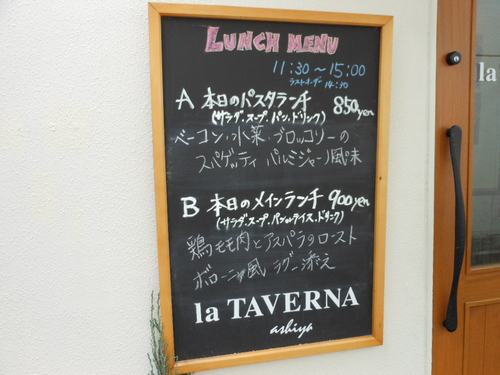 LUNCH MENU
11:30〜15:00
ラストオーダー 14:30
A 本日のパスタランチ 850yen
(サラダ・スープ・パン・ドリンク)
ベーコン・水菜・ブロッコリーの
スパゲッティ パルミジャーノ風味
B 本日のメインランチ 900yen
(サラダ・スープ・パンorライス・ドリンク)
鶏モモ肉とアスパラのロースト
ボローニャ風 ラグー添え
la TAVERNA
ashiya
la